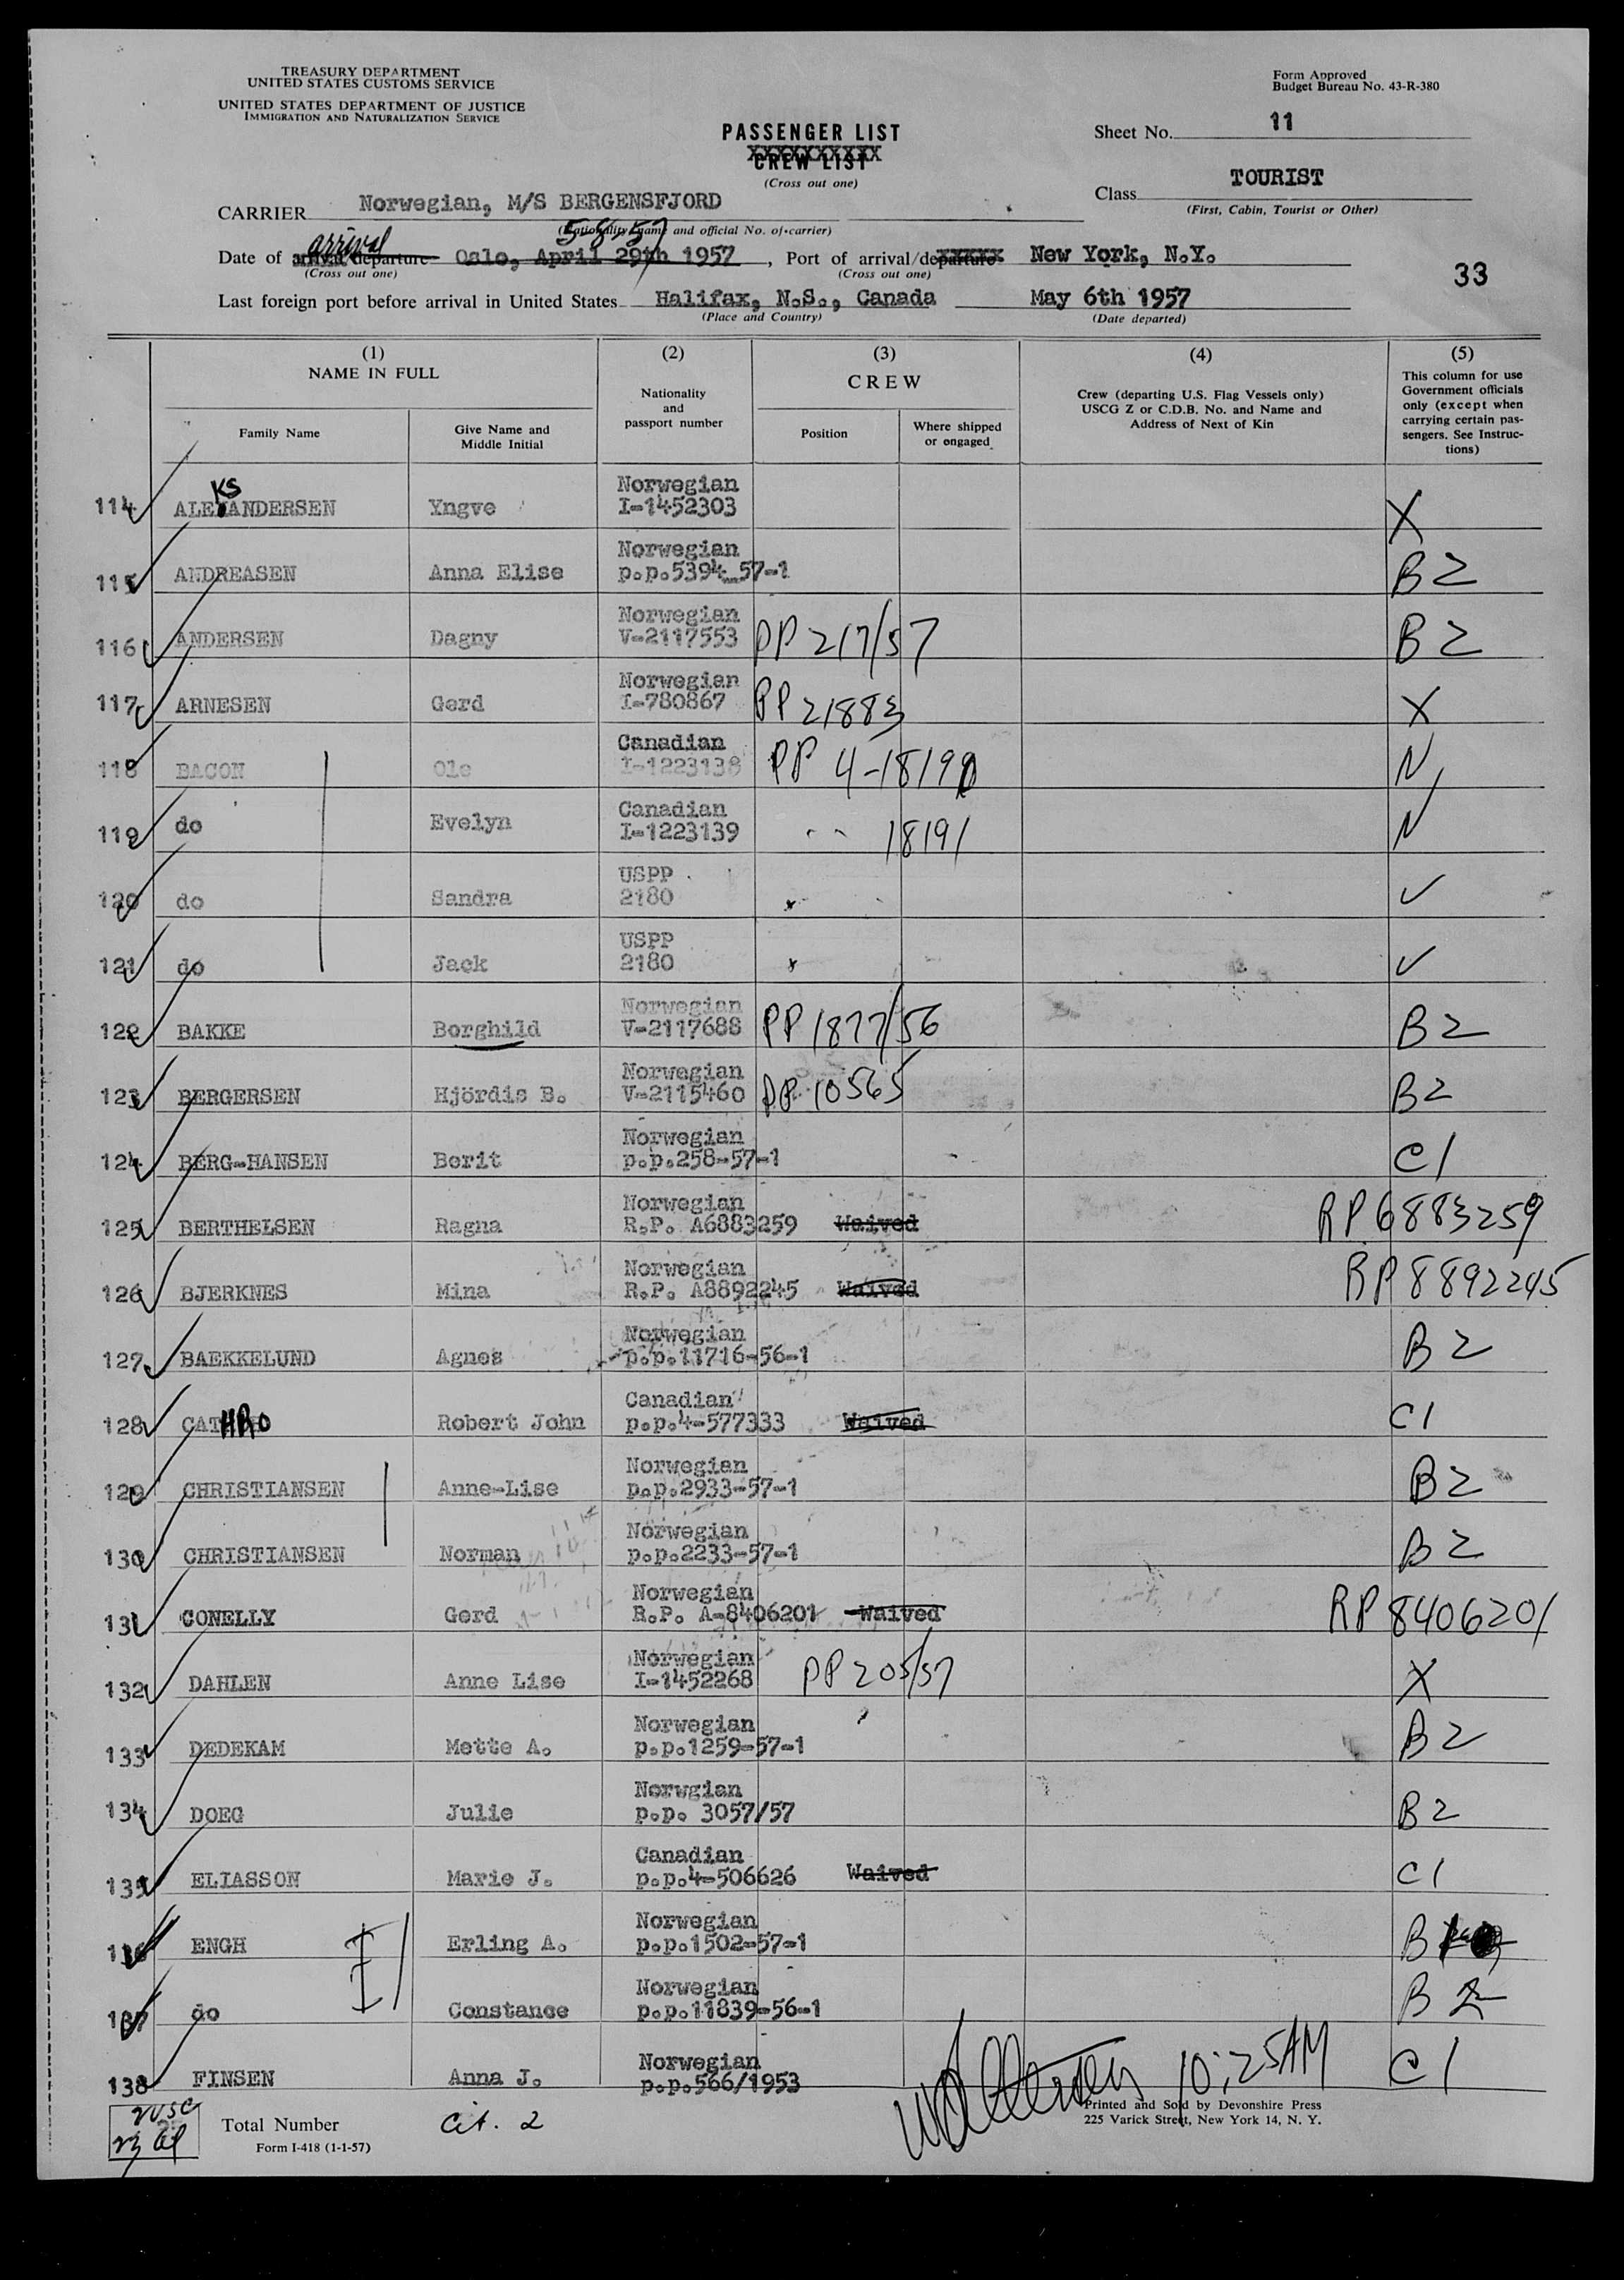 TREASURY DEPARTMENT
UNITED STATES CUSTOMS SERVICE
UNITED STATES DEPARTMENT OF JUSTICE
IMMIGRATION AND NATURALIZATION SERVICE
Form Approved
Budget Bureau No. 43-R-380
PASSENGER LIST
CREW LIST
(Cross out one)
Sheet No. 11
Class TOURIST
(First, Cabin, Tourist or Other)
CARRIER Norwegian, M/S BERGENSFJORD
(Nationality, name and official No. of carrier)
arrival 5-8-57
Date of arrival/departure Oslo, April 29th 1957, Port of arrival/departure New York, N.Y.
(Cross out one) (Cross out one)
33
Last foreign port before arrival in United States Halifax, N.S., Canada May 6th 1957
(Place and Country) (Date departed)
(1) (2) (3) (4) (5)
NAME IN FULL
Family Name
Give Name and Middle Initial
Nationality and passport number
CREW
Position
Where shipped or engaged
Crew (departing U.S. Flag Vessels only)
USCG Z or C.D.B. No. and Name and
Address of Next of Kin
This column for use
Government officials
only (except when
carrying certain pas-
sengers. See Instruc-
tions)
114 ALEKSANDERSEN Yngve Norwegian I-1452303 X
115 ANDREASEN Anna Elise Norwegian p.p.5394-57-1 B2
116 ANDERSEN Dagny Norwegian V-2117553 PP 217/57 B2
117 ARNESEN Gerd Norwegian I-780867 PP 21883 X
118 BACON Ole Canadian I-1223138 PP 4-18190 N
119 do Evelyn Canadian I-1223139 " " 18191 N
120 do Sandra USPP 2180 x ✓
121 do Jack USPP 2180 x ✓
122 BAKKE Borghild Norwegian V-2117688 PP 1877/56 B2
123 BERGERSEN Hjördis B. Norwegian V-2115460 PP 10565 B2
124 BERG-HANSEN Berit Norwegian p.p.258-57-1 C1
125 BERTHELSEN Ragna Norwegian R.P. A6883259 Waived RP 6883259
126 BJERKNES Mina Norwegian R.P. A8892245 Waived RP 8892245
127 BAEKKELUND Agnes Norwegian p.p.11716-56-1 B2
128 CATHRO Robert John Canadian p.p.4-577333 Waived C1
129 CHRISTIANSEN Anne-Lise Norwegian p.p.2933-57-1 B2
130 CHRISTIANSEN Norman Norwegian p.p.2233-57-1 B2
131 CONELLY Gerd Norwegian R.P. A-8406201 Waived RP 8406201
132 DAHLEN Anne Lise Norwegian I-1452268 PP 205/57 X
133 DEDEKAM Mette A. Norwegian p.p.1259-57-1 B2
134 DOEG Julie Norwgian p.p. 3057/57 B2
135 ELIASSON Marie J. Canadian p.p.4-506626 Waived C1
136 ENGH Erling A. Norwegian p.p.1502-57-1 B
137 do Constance Norwegian p.p.11839-56-1 B2
138 FINSEN Anna J. Norwegian p.p.566/1953 C1
10:25AM
2 USC
23 al
Total Number
Cit. 2
Form I-418 (1-1-57)
Printed and Sold by Devonshire Press
225 Varick Street, New York 14, N. Y.